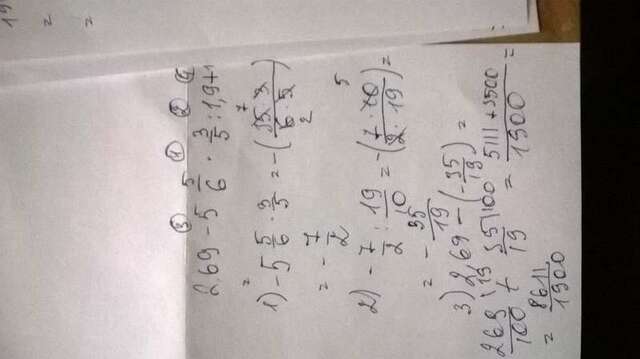 ③ ① ② ④
2,69 - 5 5/6 · 3/5 : 1,9 + 1
1) -5 5/6 · 3/5 = -(35 · 3 / 6 · 5) 7 2
= - 7/2
2) - 7/2 : 19/10 = -(7 · 10 / 2 · 19) = 5
= - 35/19
3) 2,69 - (- 35/19) =
269\19 / 100 + 35\100 / 19 = 5111 + 3500 / 1900 =
= 8611/1900